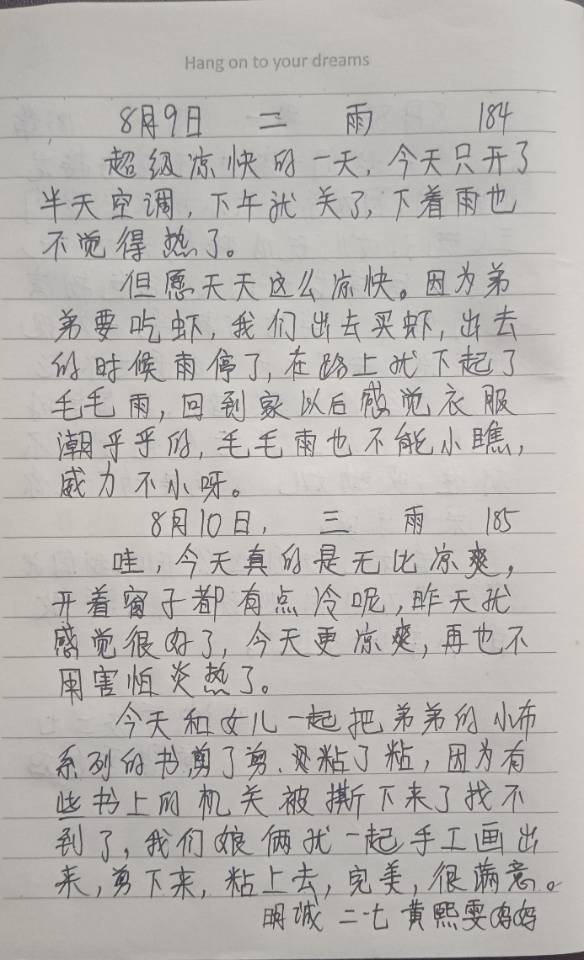 Hang on to your dreams
8月9日 二 雨 184
超级凉快的一天,今天只开了
半天空调,下午就关了,下着雨也
不觉得热了。
但愿天天这么凉快。因为弟
弟要吃虾,我们出去买虾,出去
的时候雨停了,在路上就下起了
毛毛雨,回到家以后感觉衣服
潮乎乎的,毛毛雨也不能小瞧,
威力不小呀。
8月10日, 三 雨 185
哇,今天真的是无比凉爽,
开着窗子都有点冷呢,昨天就
感觉很好了,今天更凉爽,再也不
用害怕炎热了。
今天和女儿一起把弟弟的小布
系列的书,剪了剪、粘了粘,因为有
些书上的机关被撕下来了找不
到了,我们娘俩就一起手工画出
来,剪下来,粘上去,完美,很满意。
明诚 二七 黄熙雯妈妈